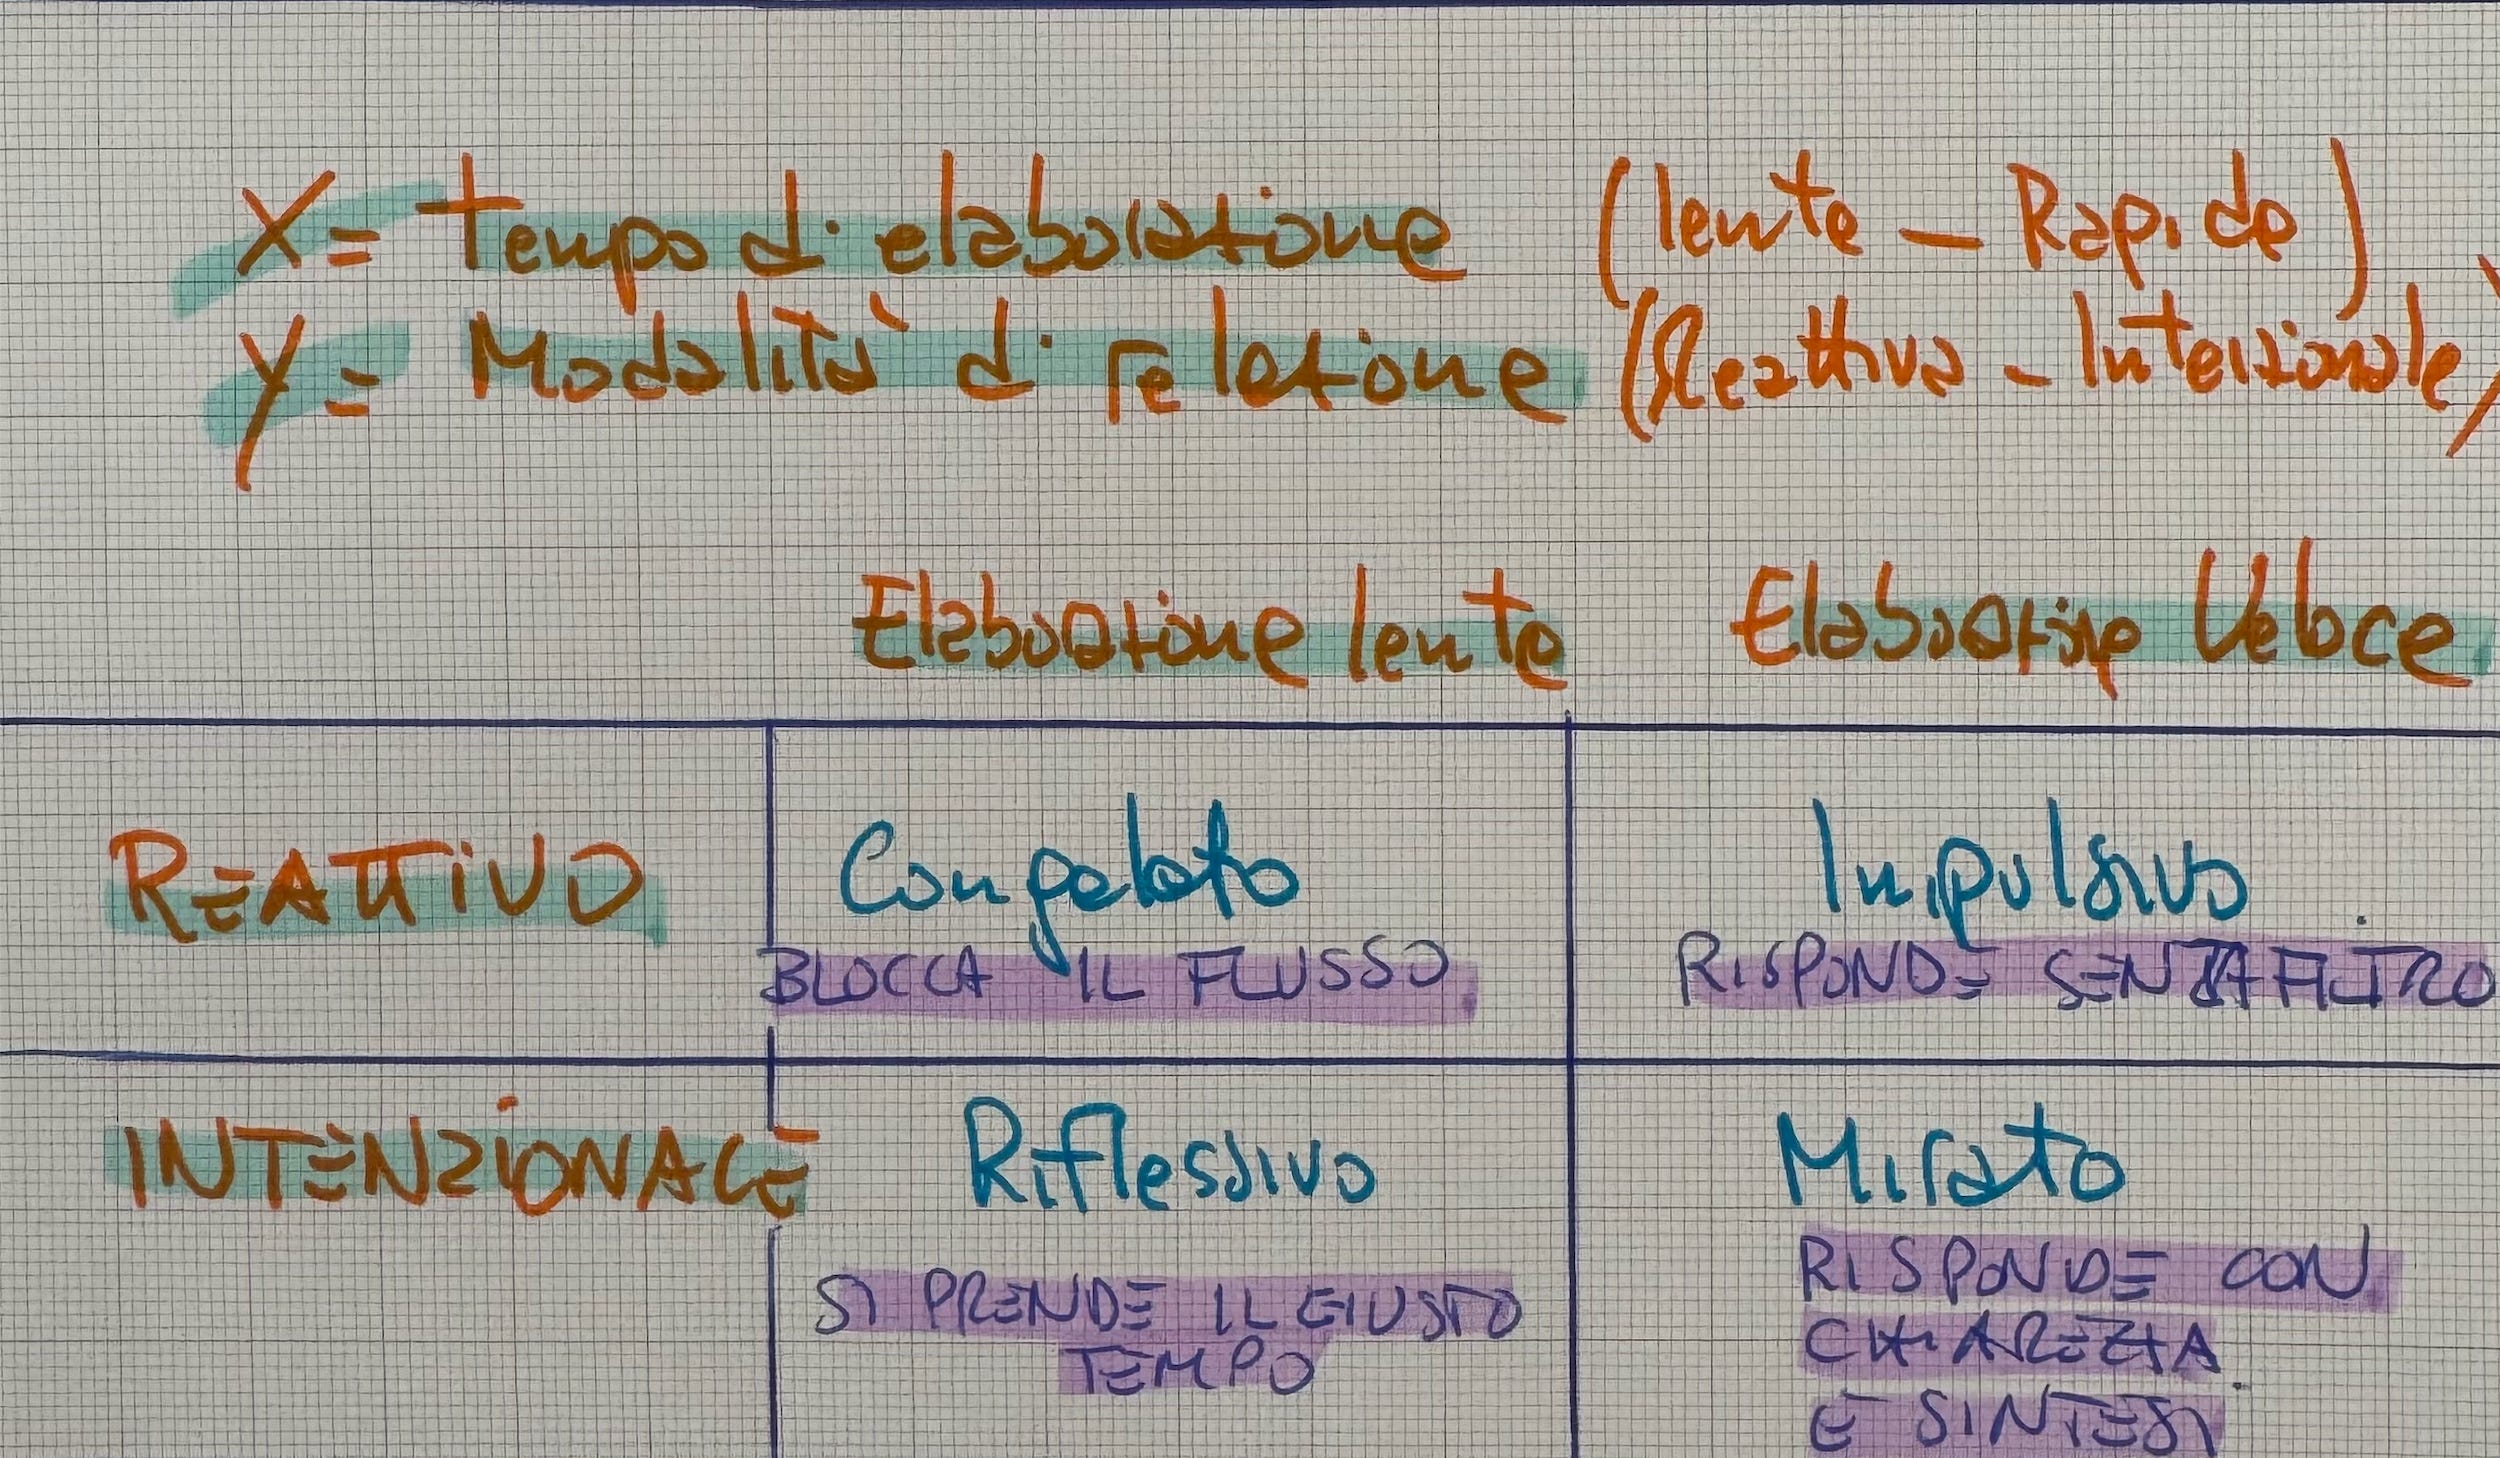 X = Tempo di elaborazione (lenta - Rapida)
Y = Modalità di relazione (Reattiva - Intenzionale)
Elaborazione lenta Elaborazione Veloce
REATTIVO Congelato Impulsivo
BLOCCA IL FLUSSO RISPONDE SENZA FILTRO
INTENZIONALE Riflessivo Mirato
SI PRENDE IL GIUSTO
TEMPO
RISPONDE CON
CHIAREZZA
E SINTESI